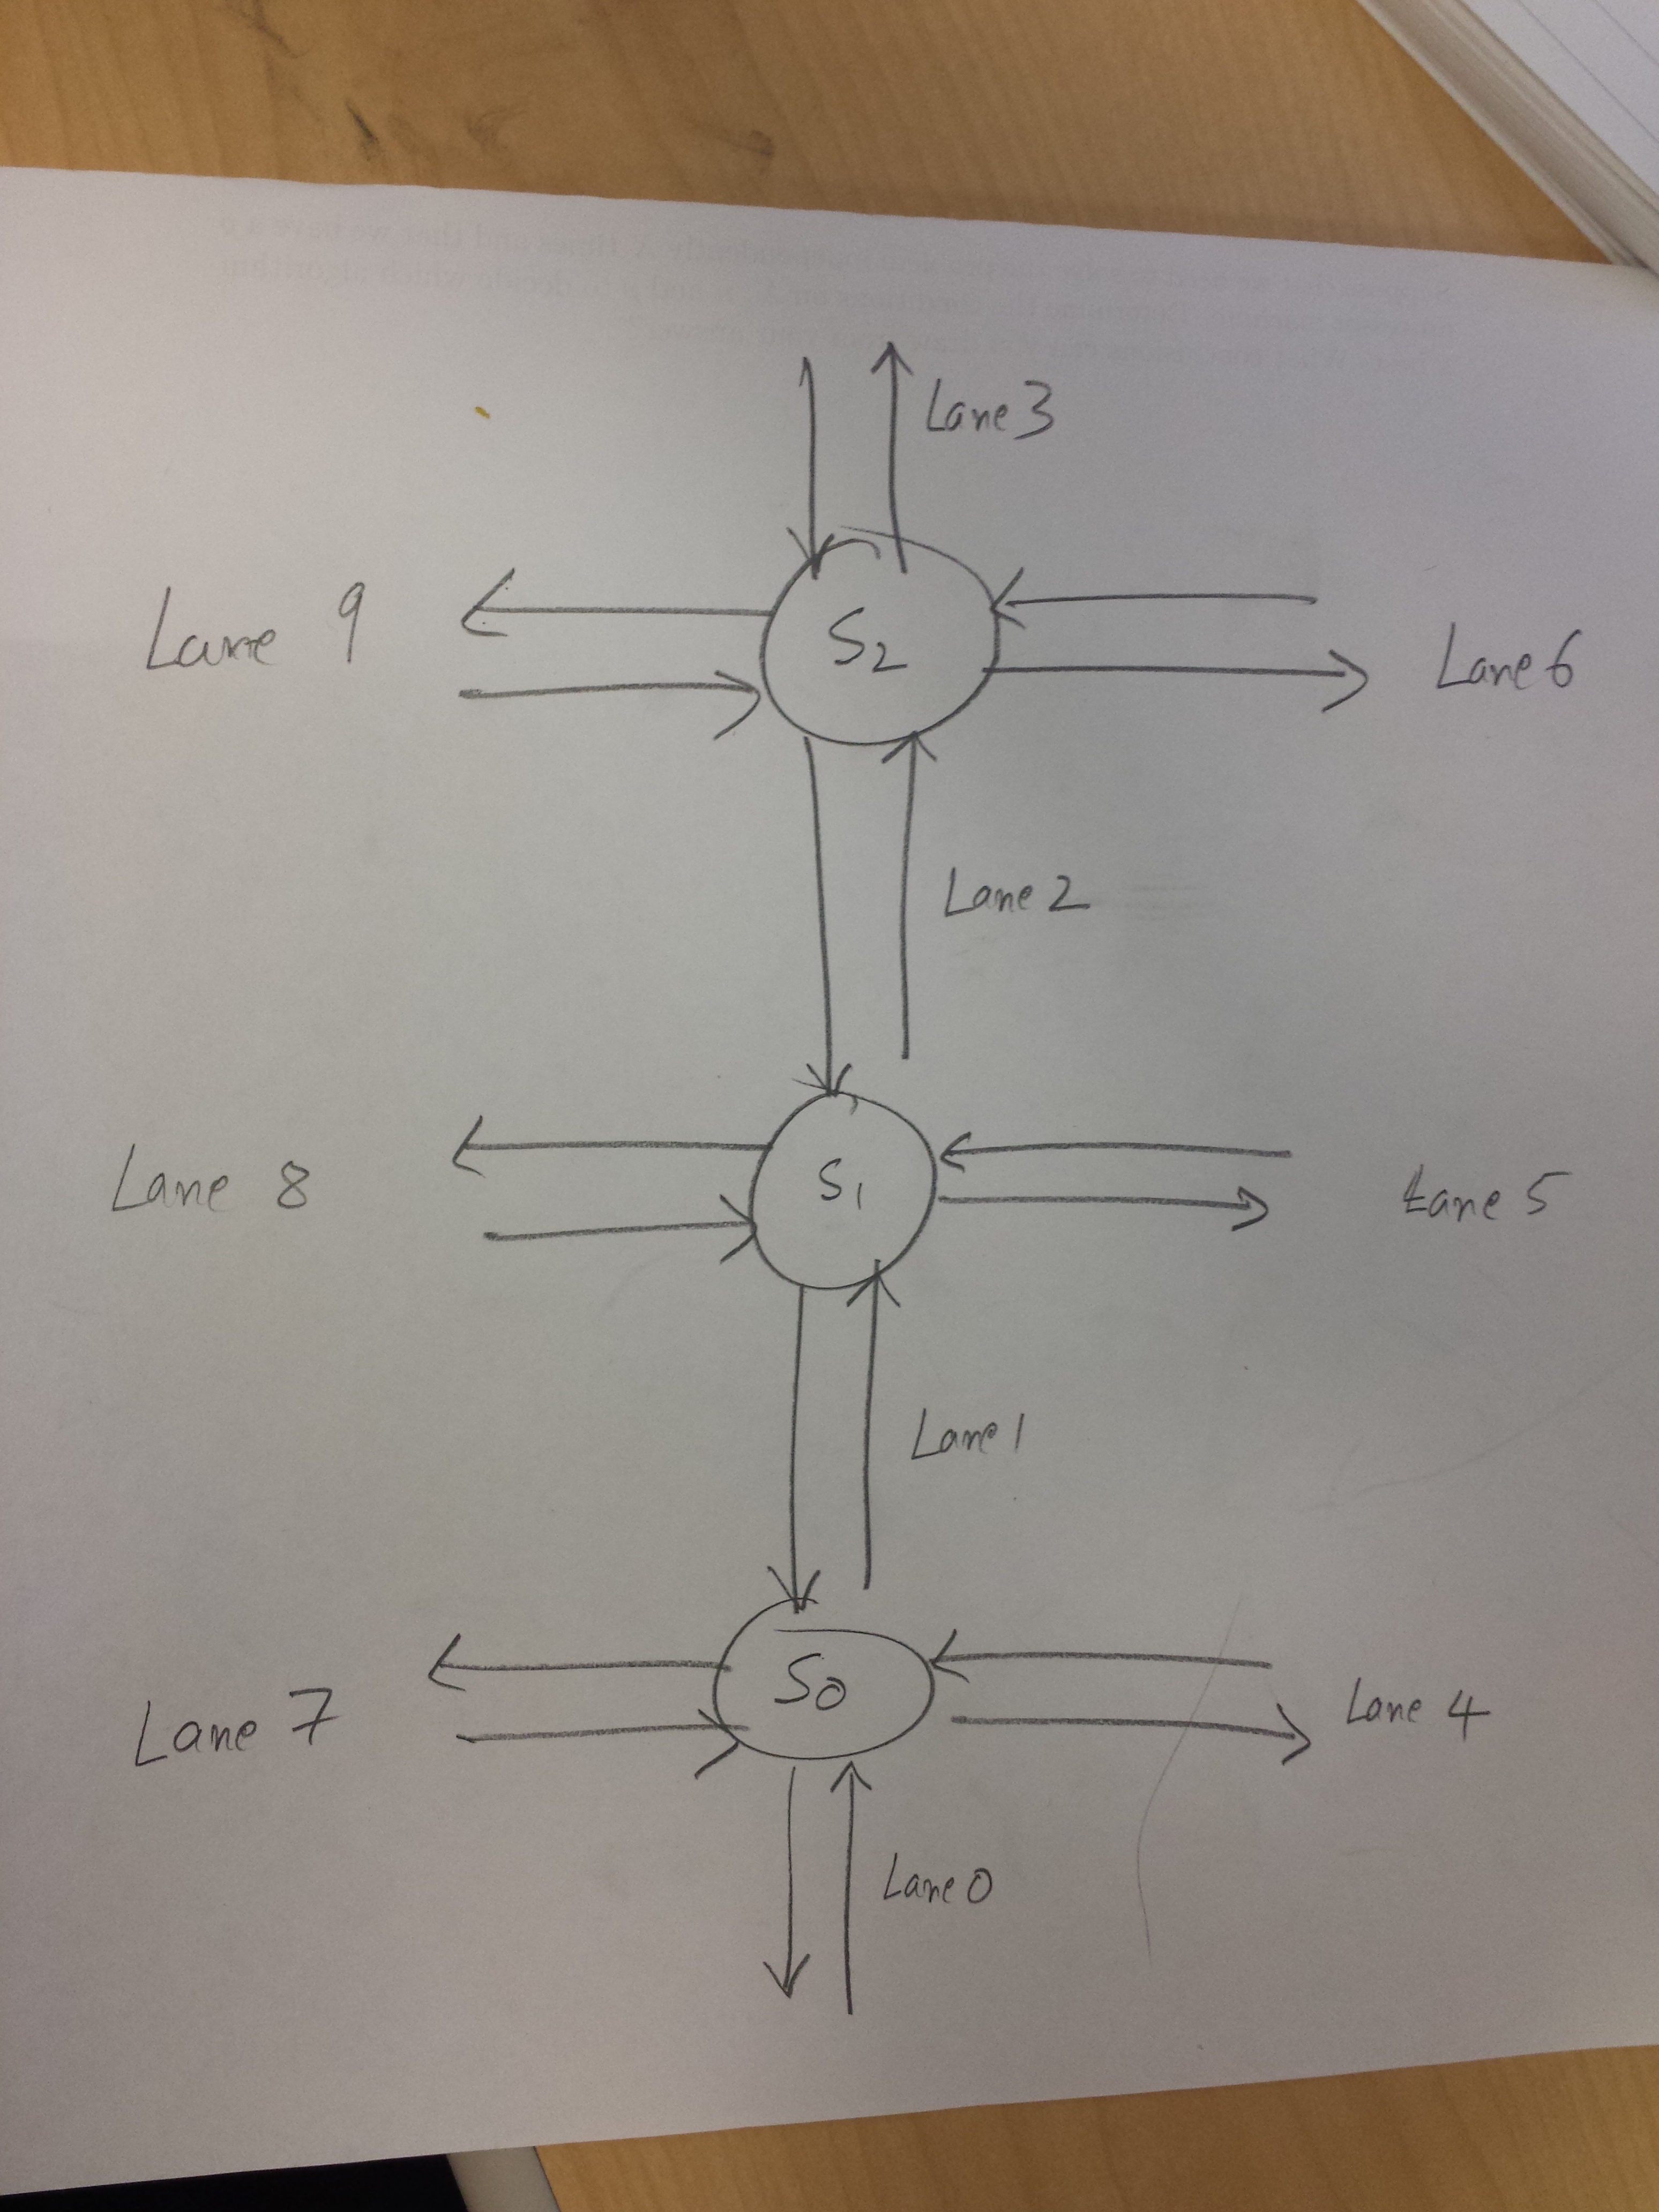 Lane 3
Lane 9
S2
Lane 6
Lane 2
Lane 8
S1
Lane 5
Lane 1
Lane 7
S0
Lane 4
Lane 0